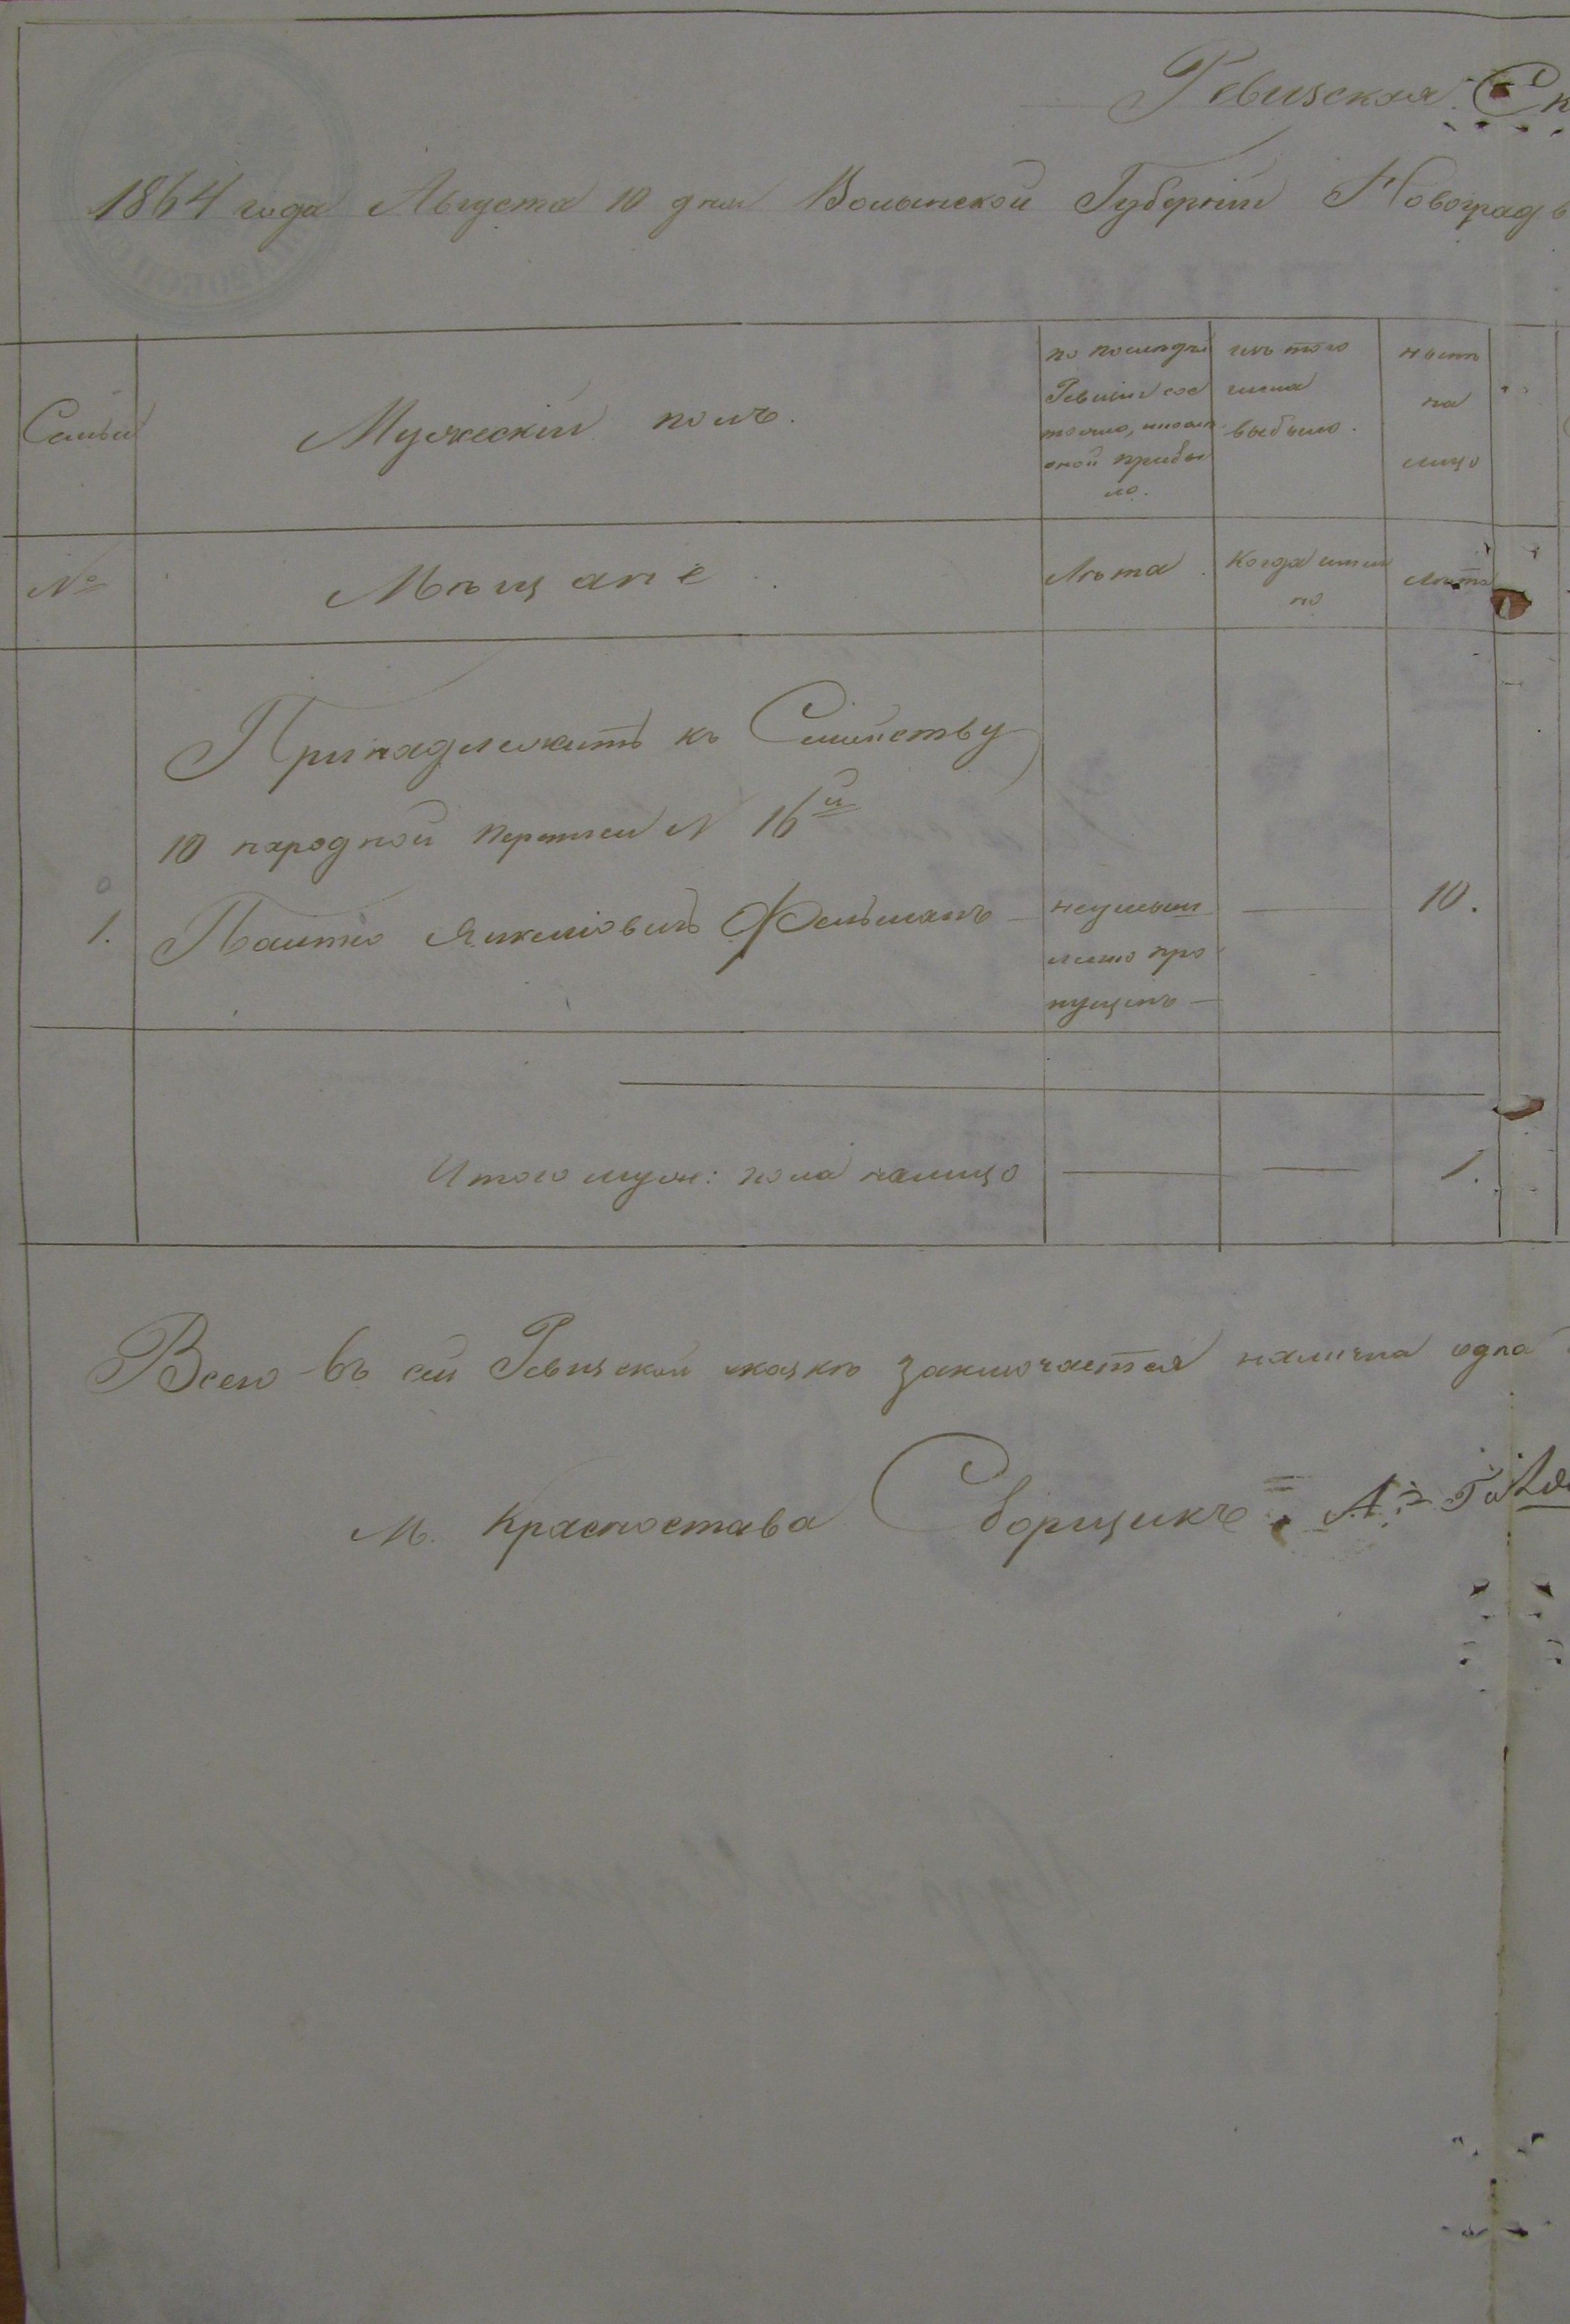 Ревизская Ск
1864 года Августа 10 дня Волынской Губерніи Новоградъ
Семьи
Мужескій полъ.
по последней
Ревизіи сос
тояло, и после
оной прибы
ло.
изъ того
числа
выбыло.
нынѣ
на
лицо
№
Мѣщане
Лѣта
Когда имен
но
Лѣта
Принадлежитъ къ Семейству
10 народной переписи № 16й
1.
Паитко Янкелiовичъ Фельманъ
неумыш
ленно про
пущенъ
10.
Итого муж: пола налицо
1.
Всего въ сей Ревизской сказкѣ заключается налична одна
М. Красностава Сборщикъ